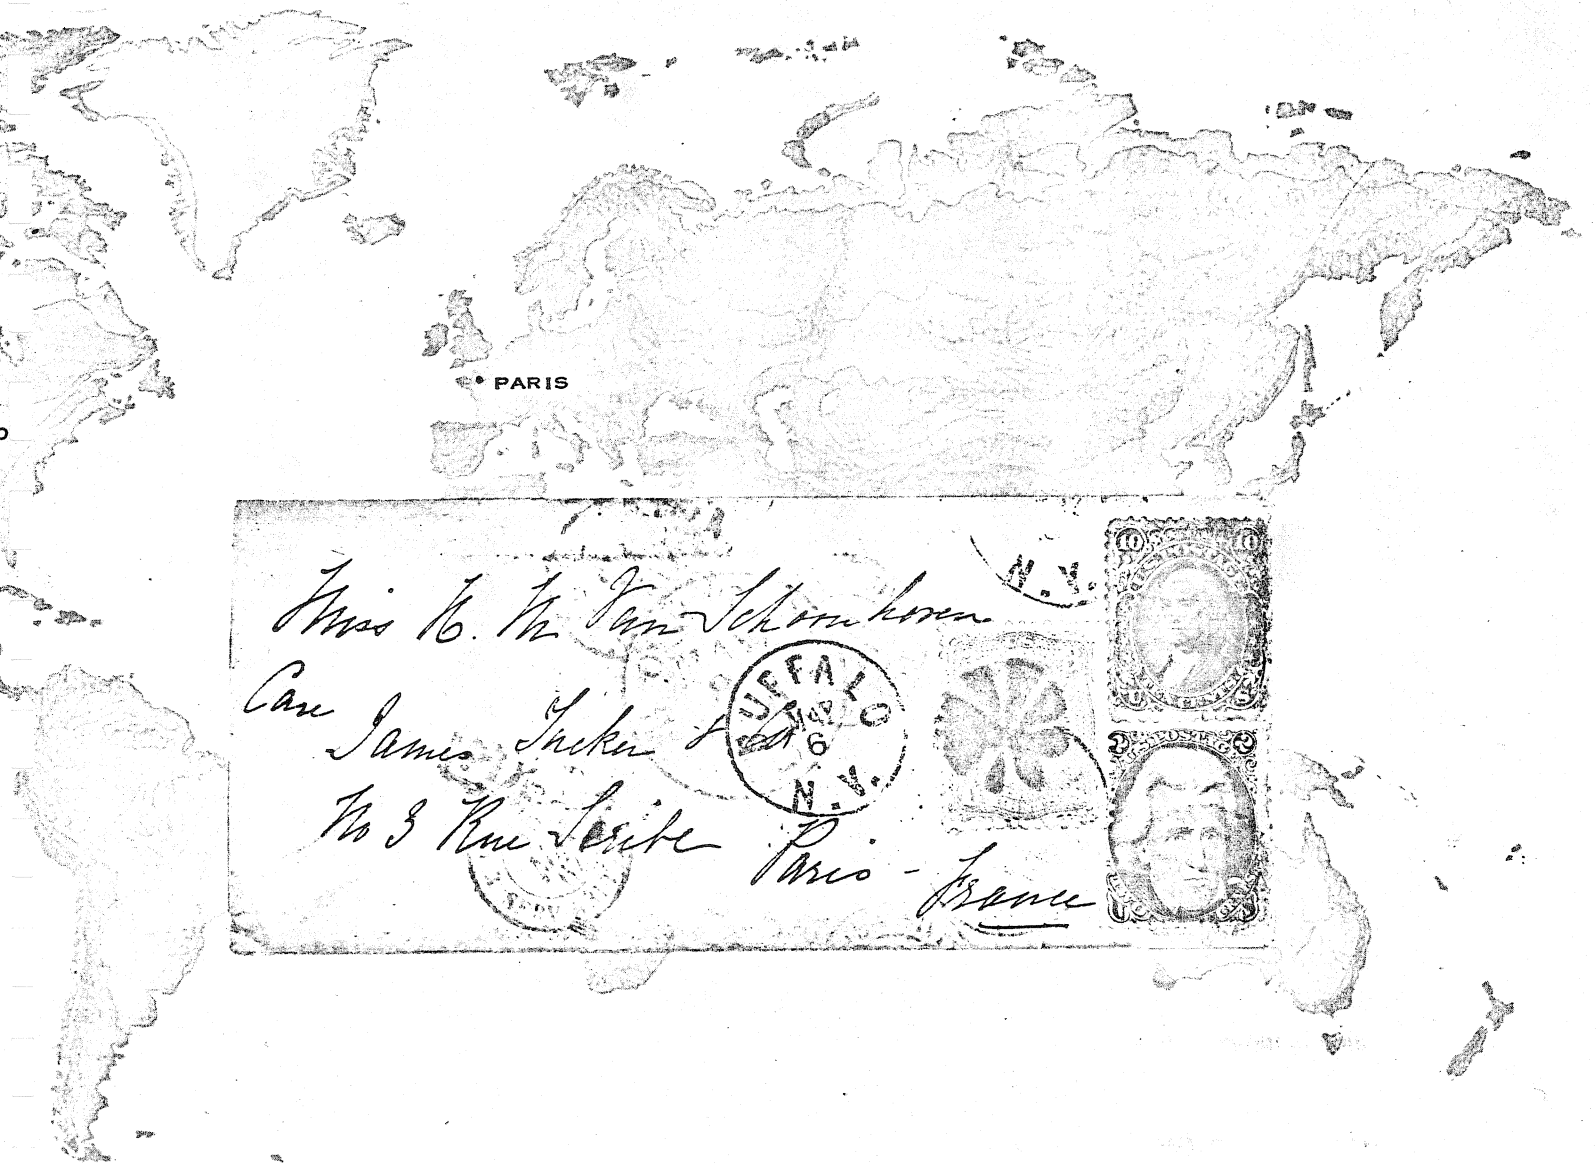 PARIS
N.Y.
10 10
Miss N. M. Van Schoonhoven
Care
James Tucker & Co
No 3 Rue Scribe Paris - France
BUFFALO
MAR
6
N.Y.
2 2
U S